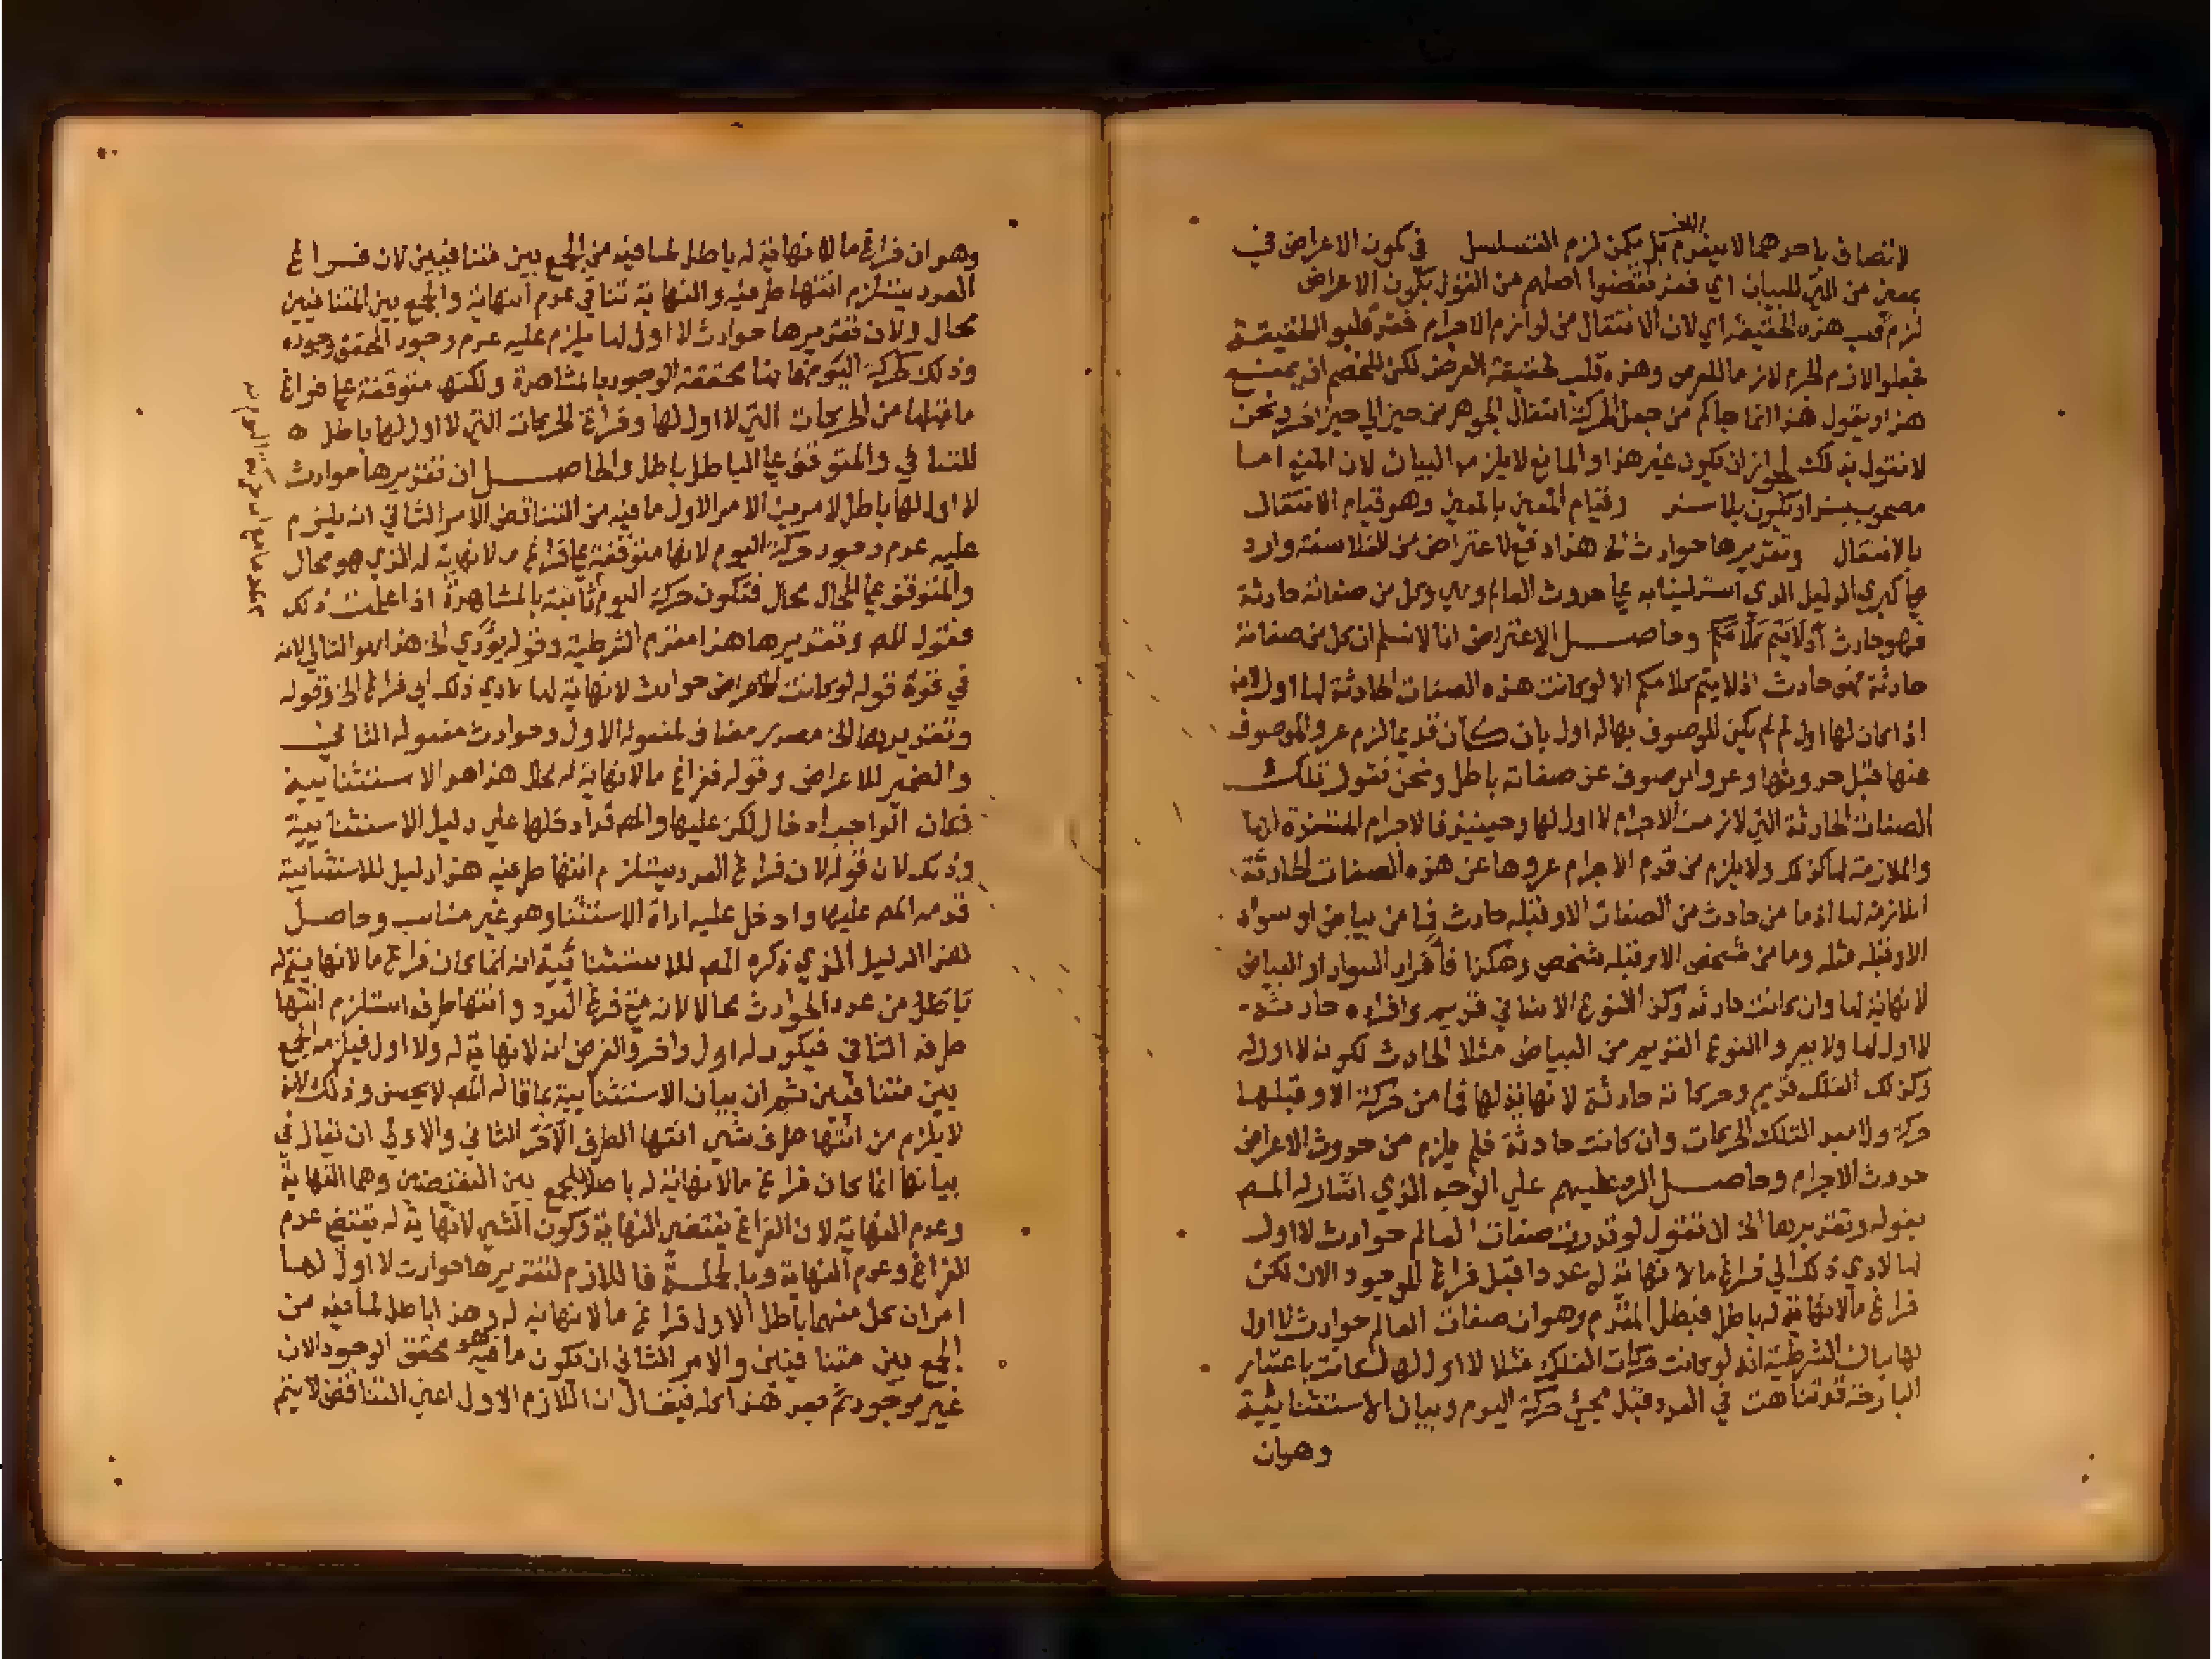 لاتصاف باحدهما لا بيقوم بل يمكن لزم التسلسل في كون الاعراض في
بمعين من الميّن للبيان اي فقد نقضوا اصلهم من القول بكون الاعراض
لزم قلب هذه الحقيقة اي لان الانتقال من لوازم الاجرام فقد قلبو الحقيقة
فجعلوا لازم الجرم لازما للعرض وهذه قلب لحقيقة العرض لكن للخصم ان يمنع
هذا ويقول هذا انما جاكم من جعل الحركة انتقال الجوهر من حيز الي حيز اخر ونحن
لا نقول بذلك لجواز ان يكون غير هذا والمانع لا يلزمه البيان لان المنع اما
مصحوب بسند او يكون بلا سند وقيام المعين بالمعين وهو قيام الانتقال
بالانتقال وتقديرها حوادث الخ هذا دفع لاعتراض من الفلاسفة وارد
علي كبري الدليل الذي استدلينا به علي حدوث العالم وهي وكل من صفاته حادثة
فهو حادث اولا يتم كلامكم وحاصل الاعتراض انا لا نسلم ان كل من صفاته
حادثة فهو حادث اذ لا يتم كلامكم الا لو كانت هذه الصفات الحادثة لها اول لانه
اذا كان لها اول لم يكن للموصوف بها له اول بان كان قديما لزم عرو الموصوف
عنها قبل حدوثها وعرو الموصوف عن صفاته باطل ونحن نقول تلك
الصفات الحادثة التي لازمت الاجرام لا اول لها وحينيذ فالاجرام
والملازمة لها كذلك ولا يلزم من قدم الاجرام عروها عن هذه الصفات الحادثة
الملازمة لها اذ ما من حادث من الصفات الا وقبله حادث فما من بياض او سواد
الا وقبله مثله وما من شخص الا وقبله شخص وهكذا فافراد السواد او البياض
لا نهاية لها وان كانت حادثه وكذا النوع الانساني قديم وافراده حادثة
لا اول لها ولا النوع القديم من البياض مثلا الحادث لكونه لا اول له
وكذلك الفلك قديم وحركاته حادثة لا نهاية لها فما من حركة الا وقبلها
حركة ولا لتلك الحركات وان كانت حادثة فلم يلزم من حدوث الاعراض
حدوث الاجرام وحاصل الرد عليهم علي الوجه الذي اشار له المص
بقوله وتقديرها الخ ان نقول لو قدرت صفات العالم حوادث لا اول
لها لادي ذلك الي فراغ ما لا نهاية له عددا قبل فراغ الموجود الان لكن
فراغ ما لا نهاية له باطل فبطل المقدم وهو ان صفات العالم حوادث لا اول
لها بيان الشرطية انه لو كانت حركات الفلك مثلا لا اول لها لكانت باعتبار
البارحة قد تناهت في العدد قبل مجئ حركة اليوم وبيان الاستثنائية
وهو ان
وهو ان فراغ ما لا نهاية له باطل لما فيه من الجمع بين متنافيين لان فراغ
العدد يستلزم انتها طرفيه والنهاية تنافي عدم النهاية والجمع بين المتنافيين
محال ولان تقديرها حوادث لا اول لها يلزم عليه عدم وجود المحقق وجوده
وذلك كحركة اليوم فانها محققة الوجود بالمشاهدة ولكنها متوقفة علي فراغ
ما قبلها من الحركات التي لا اول لها وفراغ الحركات التي لا اول لها باطل
للتنافي والمتوقف علي الباطل باطل والحاصل ان تقديرها حوادث
لا اول لها باطل لامرين الامر الاول ما فيه من التناقض الامر الثاني انه يلزم
عليه عدم وجود حركة اليوم لانها متوقفة علي فراغ ما لا نهاية له الذي هو محال
والمتوقف علي المحال محال فتكون حركة اليوم ثابتة بالمشاهدة اذا علمت ذلك
فقول المص وتقديرها هذا مقدم الشرطية وقوله يؤدي الخ هذا هو التالي لانه
في قوة قوله لو كانت الاعراض حوادث لا نهاية لها لادي ذلك الي فراغ الخ وقوله
وتقديرها الخ مصدر مضاف لمفعوله الاول وحوادث مفعوله الثاني
والضمير للاعراض وقوله ففراغ ما لا نهاية له محال هذا هو الاستثنايية
فكان الواجب ادخال لكن عليها والمص قد ادخلها علي دليل الاستثنايية
وذلك لان قوله لان فراغ العدد يستلزم انتها طرفيه هذا دليل للاستثنايية
قدمه المص عليها وادخل عليه اداة الاستثنا وهو غير مناسب وحاصل
هذا الدليل الذي ذكره المص للاستثنائية انه انما كان فراغ ما لا نهاية له
باطل من عدد الحوادث محالا لانه متي فرغ العدد وانتها طرفه استلزم انتها
طرفه الثاني فيكون له اول واخر والفرض انه لا نهاية له ولا اول فيلزمه الجمع
بين متنافيين ثم ان بيان الاستثنايية بما قاله المص لا يحسن وذلك لانه
لا يلزم من انتها طرف شي انتها الطرف الاخر الثاني والاولي ان يقال في
بيانها انما كان فراغ ما لا نهاية له باطلا للجمع بين النقيضين وهما النهاية
وعدم النهاية لان الفراغ يقتضي النهاية وكون الشي لا نهاية له يقتضي عدم
الفراغ وعدم النهاية وبالجملة فاللازم لتقديرها حوادث لا اول لها
امران كل منهما باطل الاول فراغ ما لا نهاية له وهذا باطل لما فيه من
الجمع بين متنافيين والامر الثاني ان يكون ما فيه هو محقق الوجود الان
غير موجود ثم بعد هذا كله فيقال ان اللازم الاول اعني التناقض لا يتم